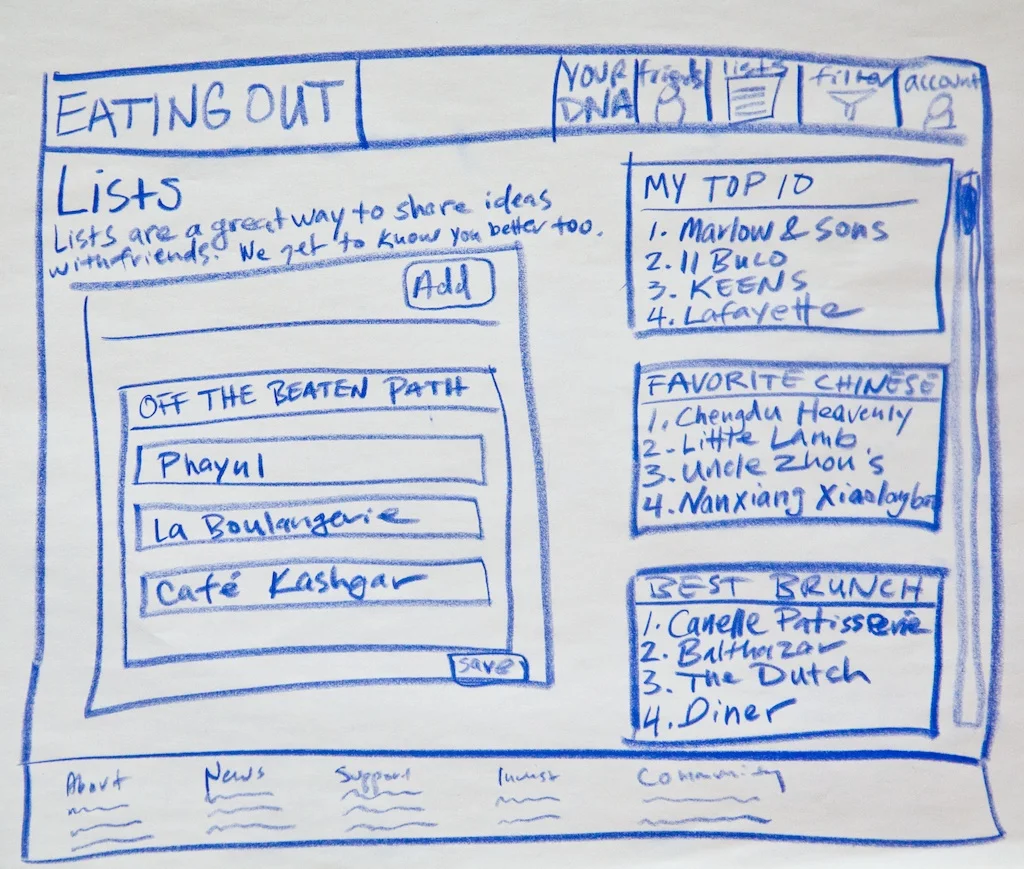 EATING OUT
YOUR DNA
friends
lists
filter
account
Lists
Lists are a great way to share ideas
with friends. We get to know you better too.
Add
OFF THE BEATEN PATH
Phayul
La Boulangerie
Café Kashgar
save
MY TOP 10
1. Marlow & Sons
2. Il Buco
3. KEENS
4. Lafayette
FAVORITE CHINESE
1. Chengdu Heavenly
2. Little Lamb
3. Uncle Zhou's
4. Nanxiang Xiaolongbao
BEST BRUNCH
1. Canelle Patisserie
2. Balthazar
3. The Dutch
4. Diner
About
News
Support
Invest
Community